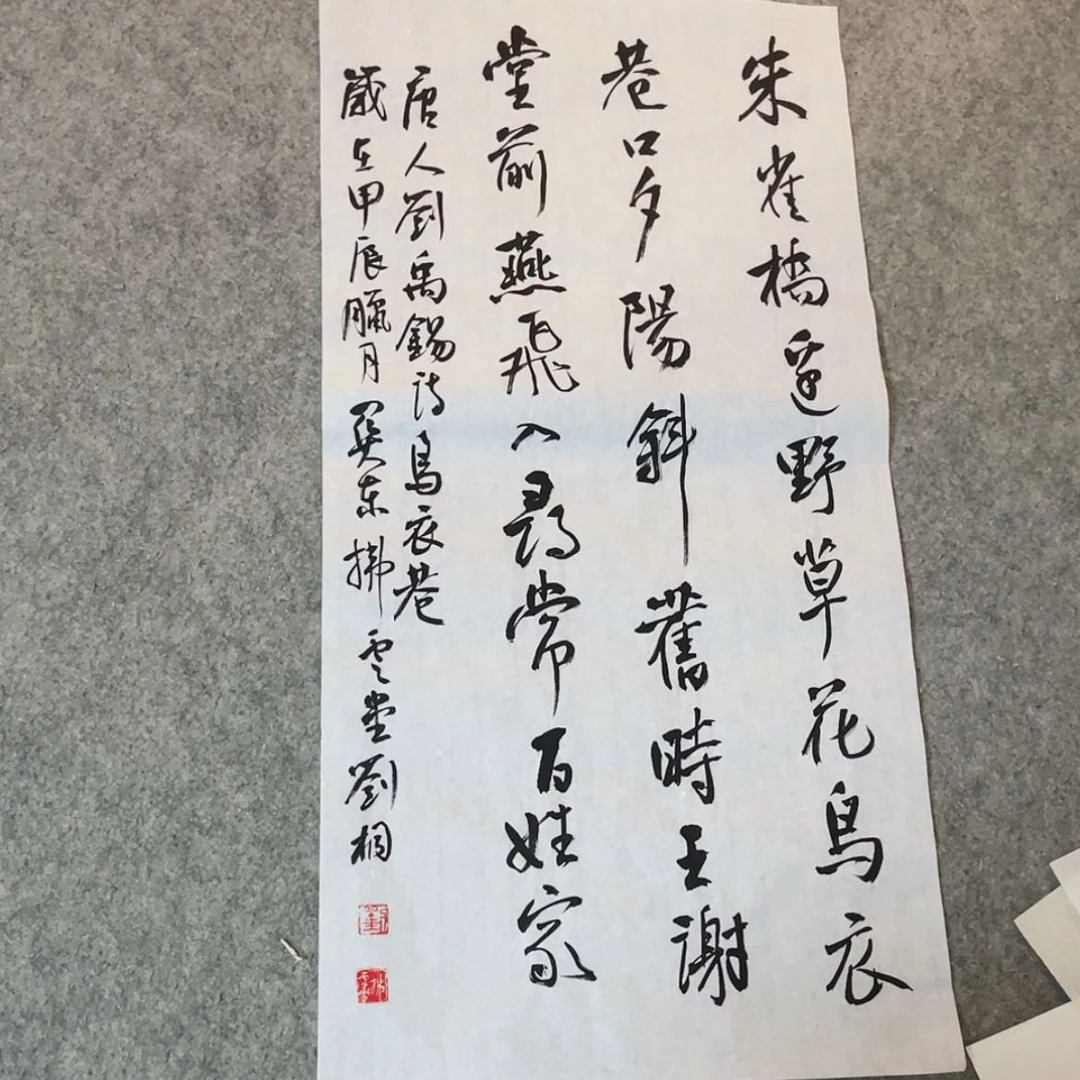 朱雀橋邊野草花烏衣
巷口夕陽斜舊時王謝
堂前燕飛入尋常百姓家
唐人劉禹錫詩烏衣巷
歲在甲辰臘月關東拂雲堂劉桐
劉